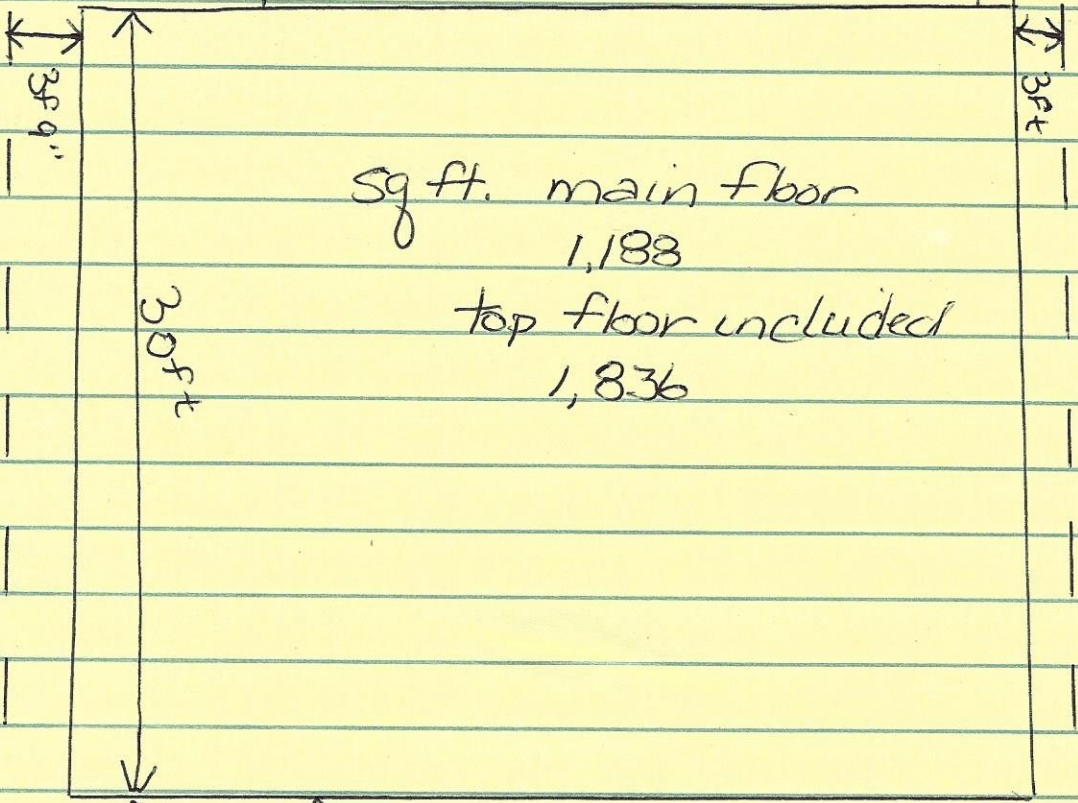 3f 9"
3ft
sq ft. main floor
1,188
top floor included
1,836
30ft